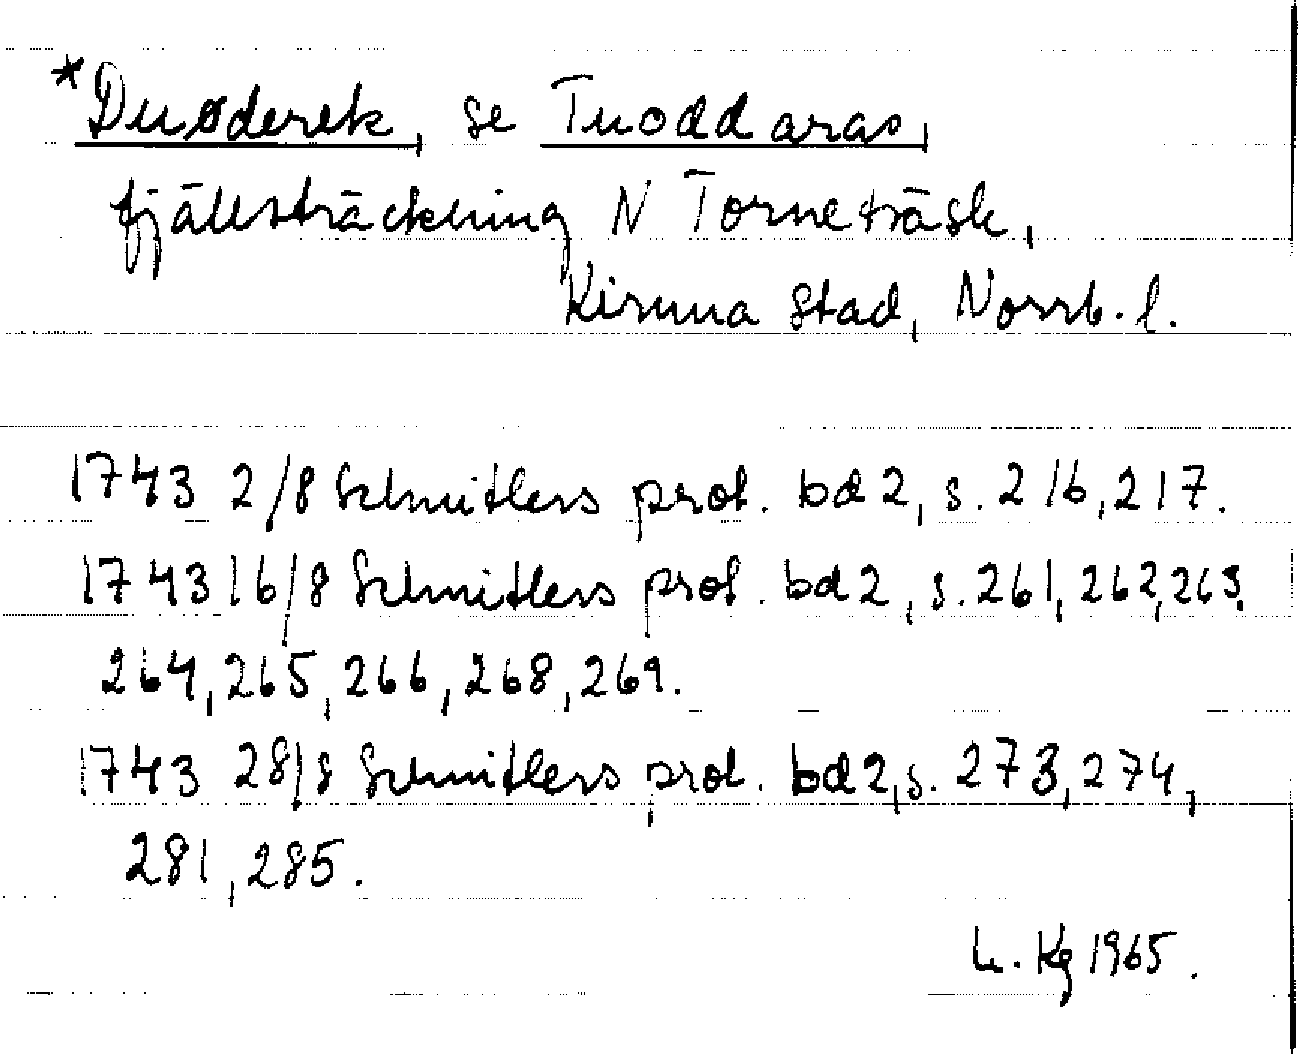 *Duøderek, se Tuoddaras,
fjällsträckning N Torneträsk,
Kiruna stad, Norrb. l.
1743 2/8 Schnitlers prot. bd 2, s. 216, 217.
1743 16/8 Schnitlers prot. bd 2, s. 261, 262, 263,
264, 265, 266, 268, 269.
1743 28/8 Schnitlers prot. bd 2, s. 273, 274,
281, 285.
L. Kg 1965.